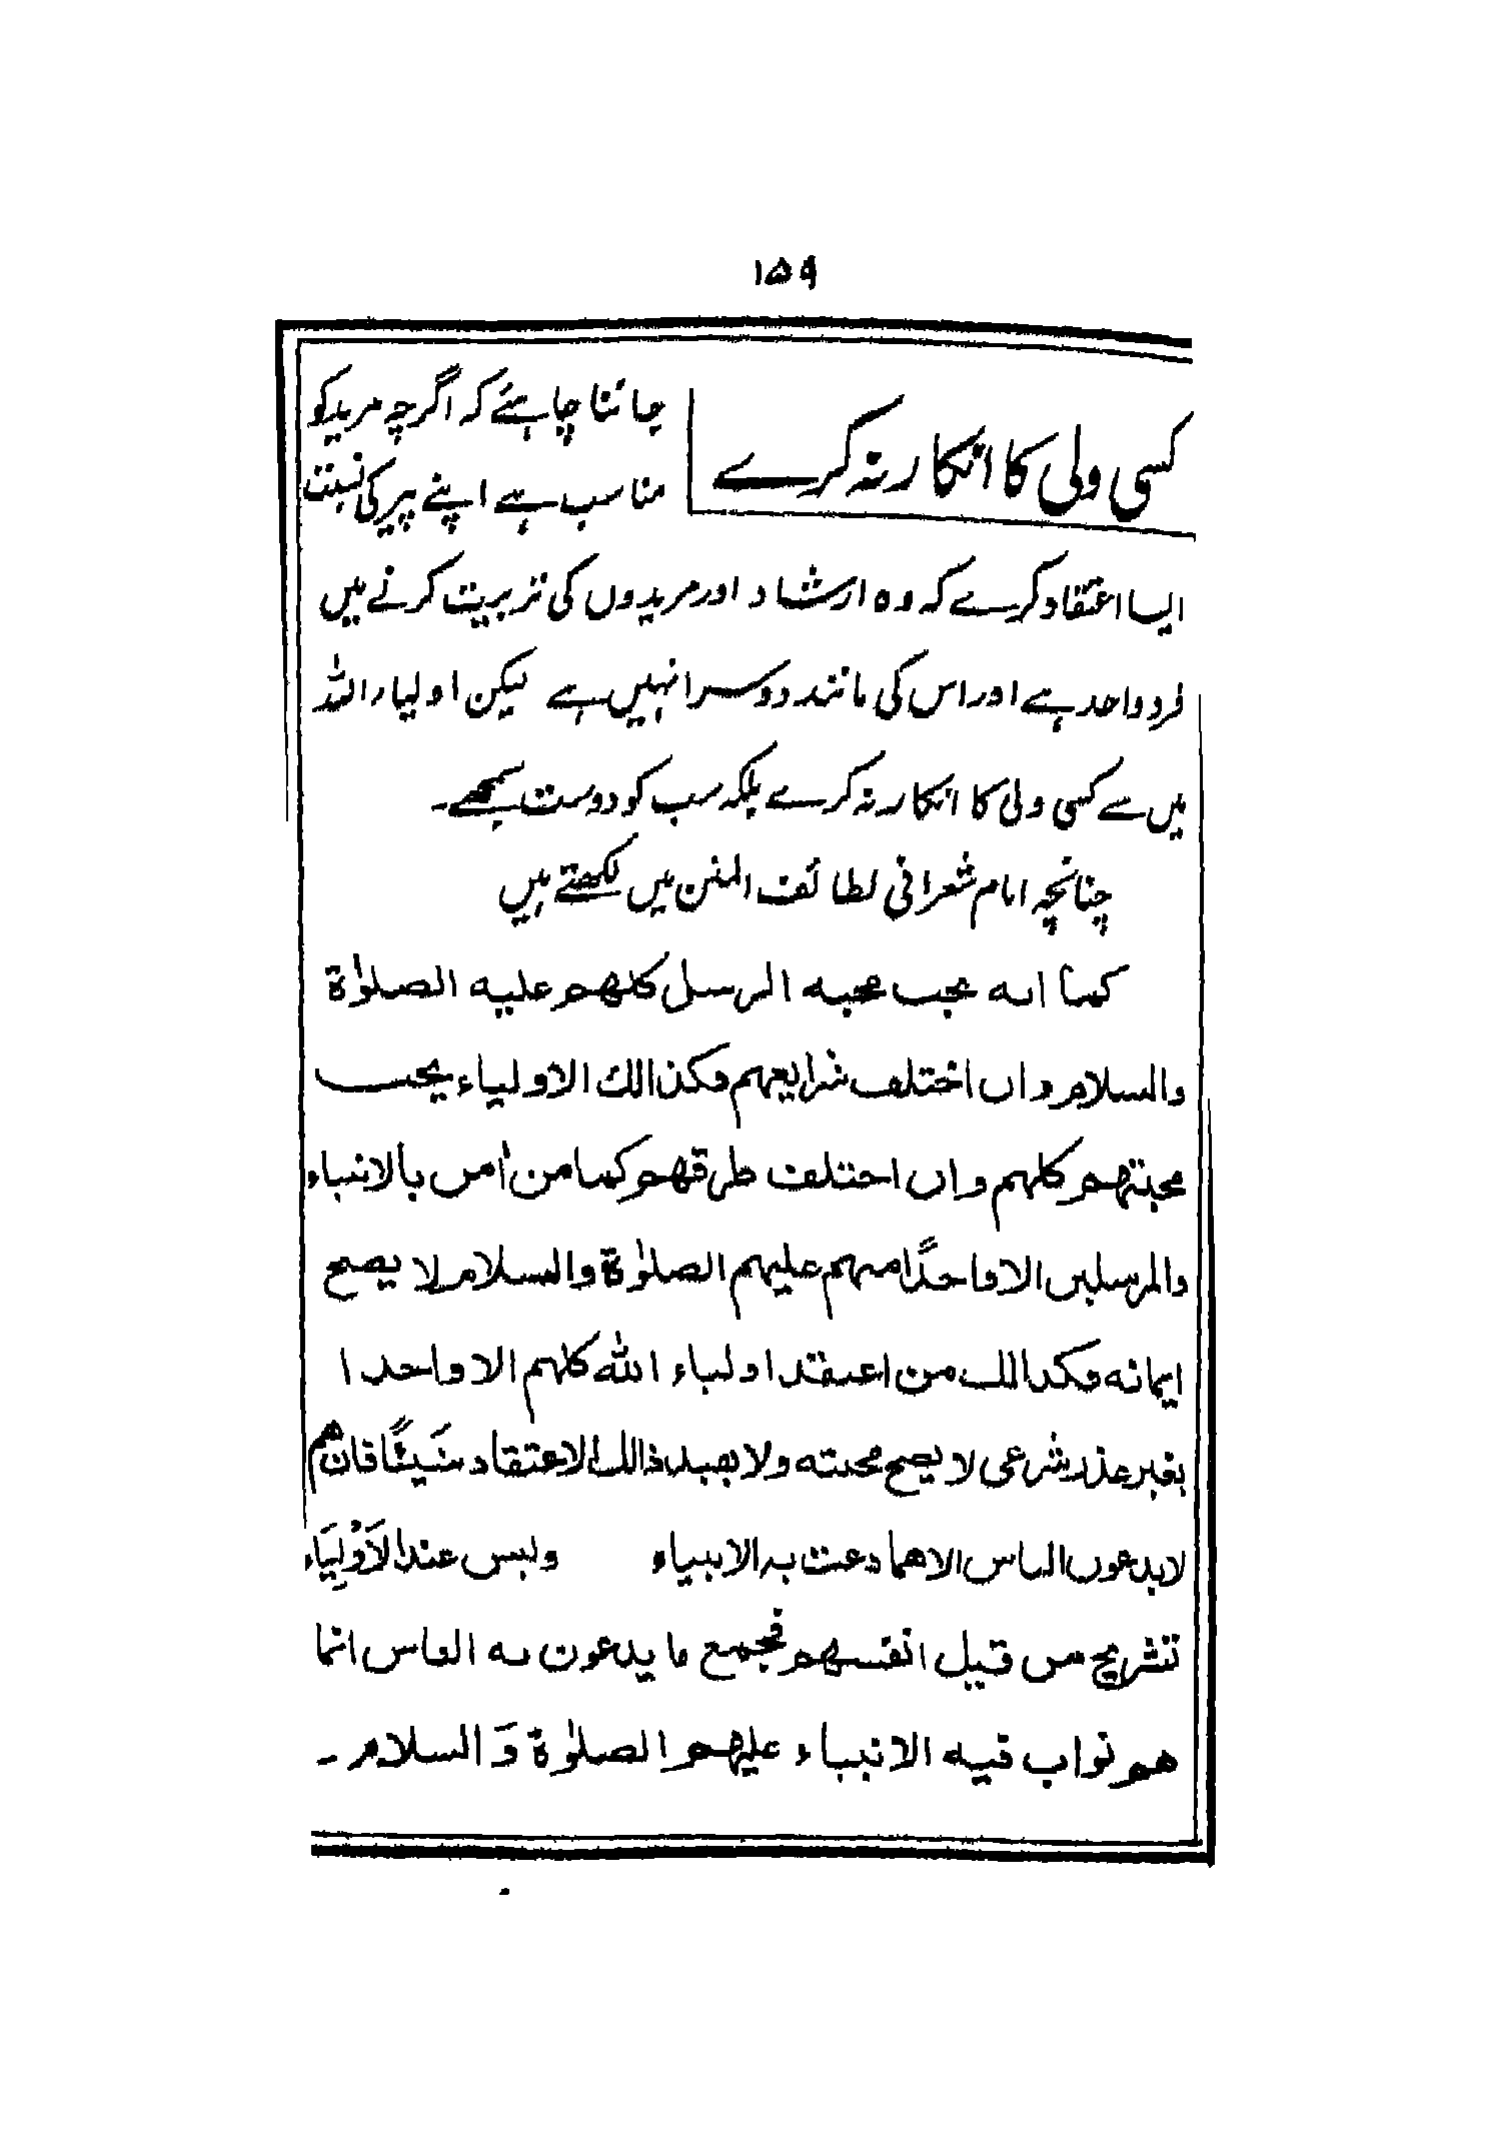 ۱۵۹
کسی ولی کا انکار نہ کرے
جاننا چاہئے کہ اگرچہ مرید کو
مناسب ہے اپنے پیر کی نسبت
ایسا اعتقاد کرے کہ وہ ارشاد اور مریدوں کی تربیت کرنے میں
فرد واحد ہے اور اس کی مانند دوسرا نہیں ہے لیکن اولیاء اللہ
میں سے کسی ولی کا انکار نہ کرے بلکہ سب کو دوست سمجھے۔
چنانچہ امام شعرانی لطائف المنن میں لکھتے ہیں
كما انه يجب محبة الرسل كلهم عليه الصلوٰة
والسلام وان اختلف شرايعهم فكذالك الاولياء يجب
محبتهم كلهم وان اختلف طرقهم كما من اٰمن بالانبياء
والمرسلين الا واحدًا منهم عليهم الصلوٰة والسلام لا يصح
ايمانه فكذالك من اعتقد اولياء الله كلهم الا واحدا
بغير عذر شرعى لا يصح محبته ولا يفيد ذالك الاعتقاد شَيئًا فان هم
لا يدعون الناس الا بما دعت به الانبياء وليس عند الاَوْلِيَاء
تشريع من قبل انفسهم فجميع ما يدعون به الناس انما
هم نواب فيه الانبياء عليهم الصلوٰة وَالسلام۔